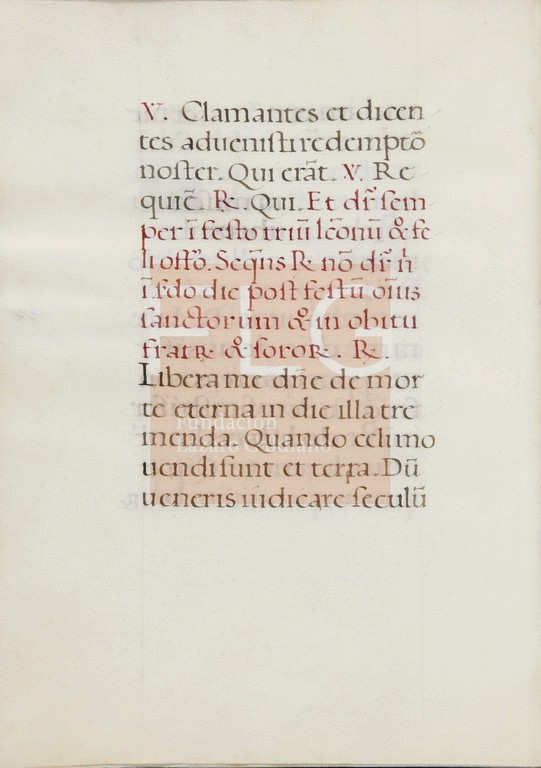 V. Clamantes et dicen
tes aduenisti redemptō
noster. Qui erāt. V. Re
quiē. R. Qui. Et dr̄ sem
per ī festo triū lc̄onū & fe
li offō. Seqn̄s R nō dr̄ n̄
ī sdo die post festū oīus
sanctorum & in obitu
fratR & sororR. R.
Libera me dn̄e de mor
te eterna in die illa tre
menda. Quando celi mo
uendi sunt et terra. Dū
ueneris iudicare seculū
FLG
Fundación
Lázaro Galdiano